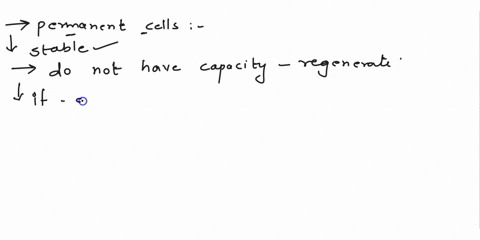 → permanent cells :-
↓ stable ✓
→ do not have capacity - regenerate.
↓ if -